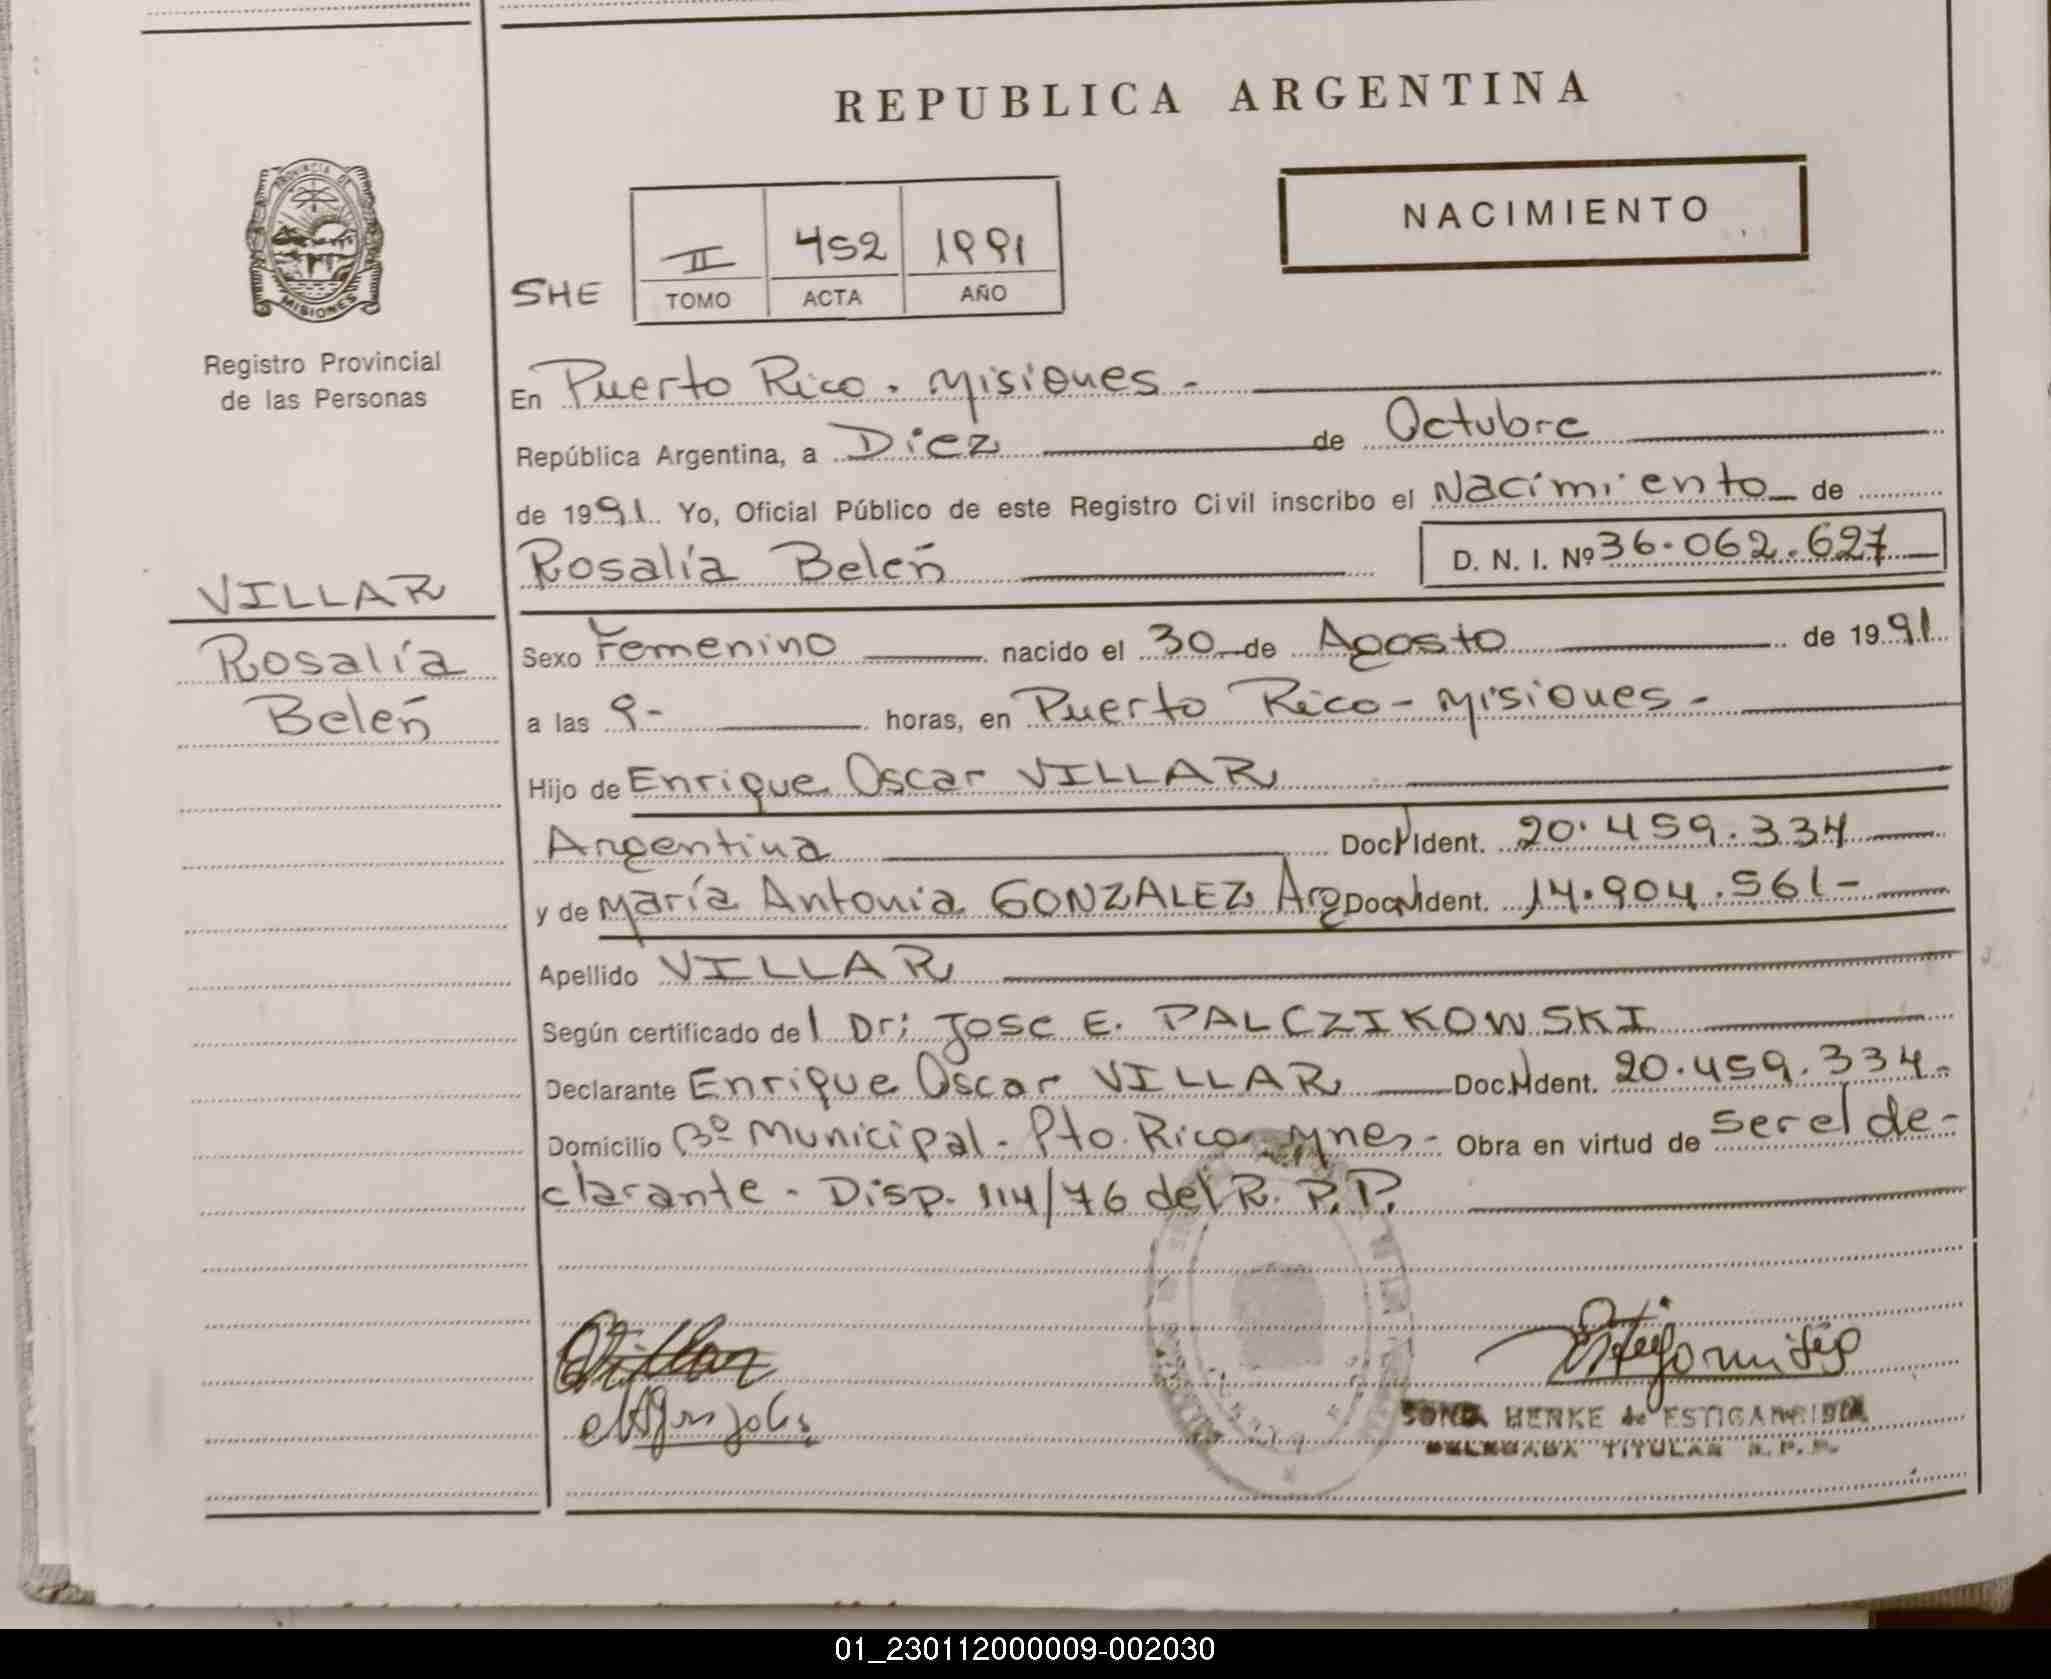 REPUBLICA ARGENTINA
PROVINCIA DE
MISIONES
Registro Provincial
de las Personas
NACIMIENTO
SHE
II 452 1991
TOMO ACTA AÑO
En Puerto Rico. Misiones -
República Argentina, a Diez de Octubre
de 1991. Yo, Oficial Público de este Registro Civil inscribo el Nacimiento de
Rosalía Belén
D. N. I. Nº 36.062.627
VILLAR
Rosalía
Belén
Sexo Femenino nacido el 30 de Agosto de 1991
a las 9- horas, en Puerto Rico - Misiones -
Hijo de Enrique Oscar VILLAR
Argentina Doc. Ident. 20.459.334
y de María Antonia GONZALEZ Arg Doc. Ident. 14.904.561-
Apellido VILLAR
Según certificado del Dr: Jose E. PALCZIKOWSKI
Declarante Enrique Oscar VILLAR Doc. Ident. 20.459.334-
Domicilio Bº Municipal - Pto. Rico - Mnes - Obra en virtud de ser el de-
clarante - Disp. 114/76 del R. P. P.
SONIA HENKE de ESTIGARRIBIA
DELEGADA TITULAR R. P. P.
01_230112000009-002030